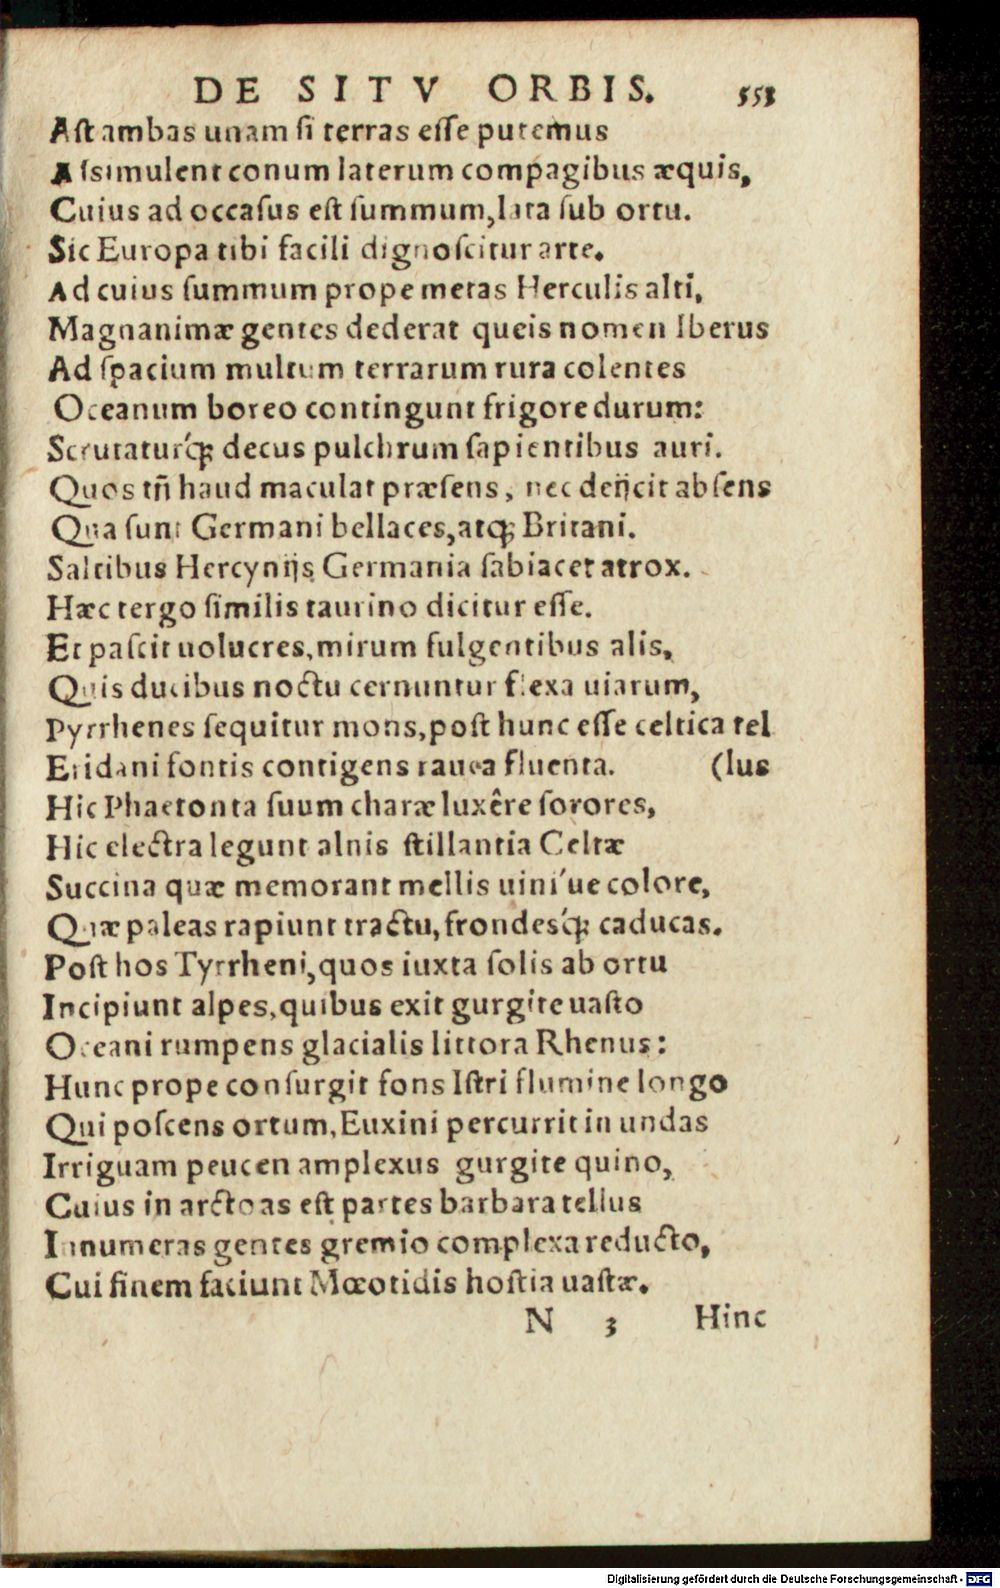 DE SITV ORBIS. 553
Aſt ambas unam ſi terras eſſe putemus
Aſsimulent conum laterum compagibus æquis,
Cuius ad occaſus eſt ſummum, lata ſub ortu.
Sic Europa tibi facili dignoſcitur arte.
Ad cuius ſummum prope metas Herculis alti,
Magnanimæ gentes dederat queis nomen Iberus
Ad ſpacium multum terrarum rura colentes
Oceanum boreo contingunt frigore durum:
Scrutaturq́ꝫ decus pulchrum ſapientibus auri.
Quos tñ haud maculat præſens, nec deijcit abſens
Qua ſunt Germani bellaces, atqꝫ Britani.
Saltibus Hercynijs Germania ſabiacet atrox.
Hæc tergo ſimilis taurino dicitur eſſe.
Et paſcit uolucres, mirum fulgentibus alis,
Quis ducibus noctu cernuntur flexa uiarum,
Pyrrhenes ſequitur mons, poſt hunc eſſe celtica tel
Eridani fontis contigens rauca fluenta. (lus
Hic Phaetonta ſuum charæ luxêre ſorores,
Hic electra legunt alnis ſtillantia Celtæ
Succina quæ memorant mellis uini'ue colore,
Quæ paleas rapiunt tractu, frondesq́ꝫ caducas.
Poſt hos Tyrrheni, quos iuxta ſolis ab ortu
Incipiunt alpes, quibus exit gurgite uaſto
Oceani rumpens glacialis littora Rhenus:
Hunc prope conſurgit fons Iſtri flumine longo
Qui poſcens ortum, Euxini percurrit in undas
Irriguam peucen amplexus gurgite quino,
Cuius in arctoas eſt partes barbara tellus
Innumeras gentes gremio complexa reducto,
Cui finem faciunt Mœotidis hoſtia uaſtæ.
N 3 Hinc
Digitalisierung gefördert durch die Deutsche Forschungsgemeinschaft - DFG